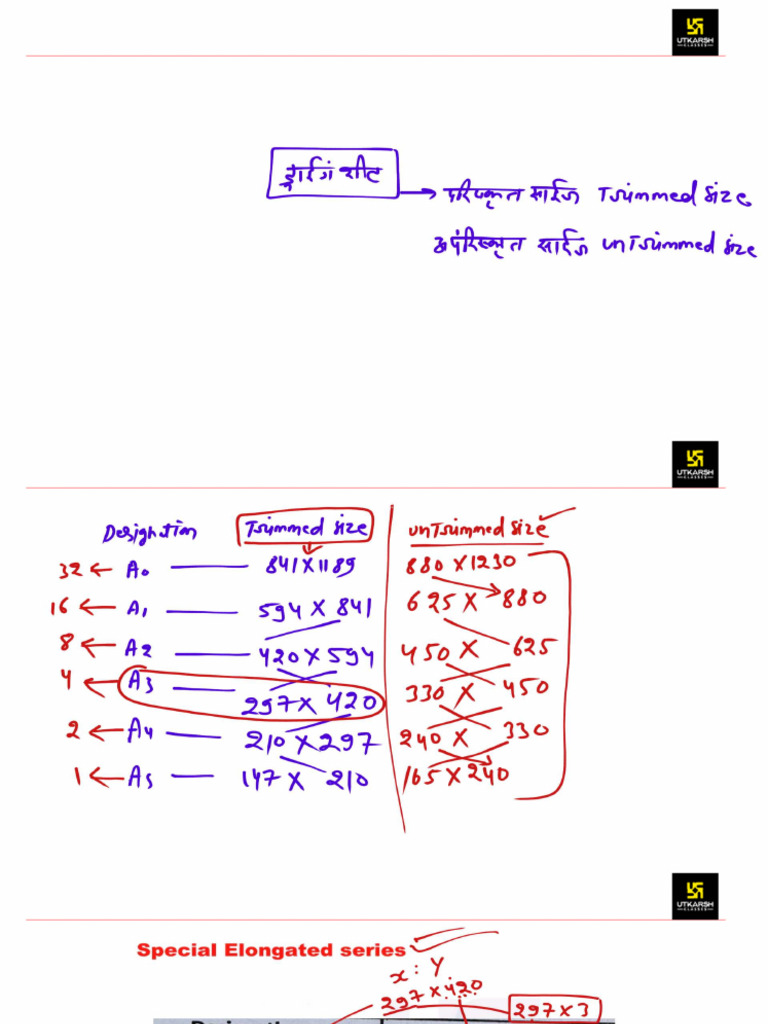 UTKARSH
CLASSES
ड्राईगं शीट
परिष्कृत साईज Trimmed Size
अपरिष्कृत साईज unTrimmed size
UTKARSH
CLASSES
Designation Trimmed size unTrimmed size
32 ← A0 841 X 1189 880 X 1230
16 ← A1 594 X 841 625 X 880
8 ← A2 420 X 594 450 X 625
4 ← A3 297 X 420 330 X 450
2 ← A4 210 X 297 240 X 330
1 ← A5 147 X 210 165 X 240
UTKARSH
CLASSES
Special Elongated series
x : Y
297 X 420
297 X 3